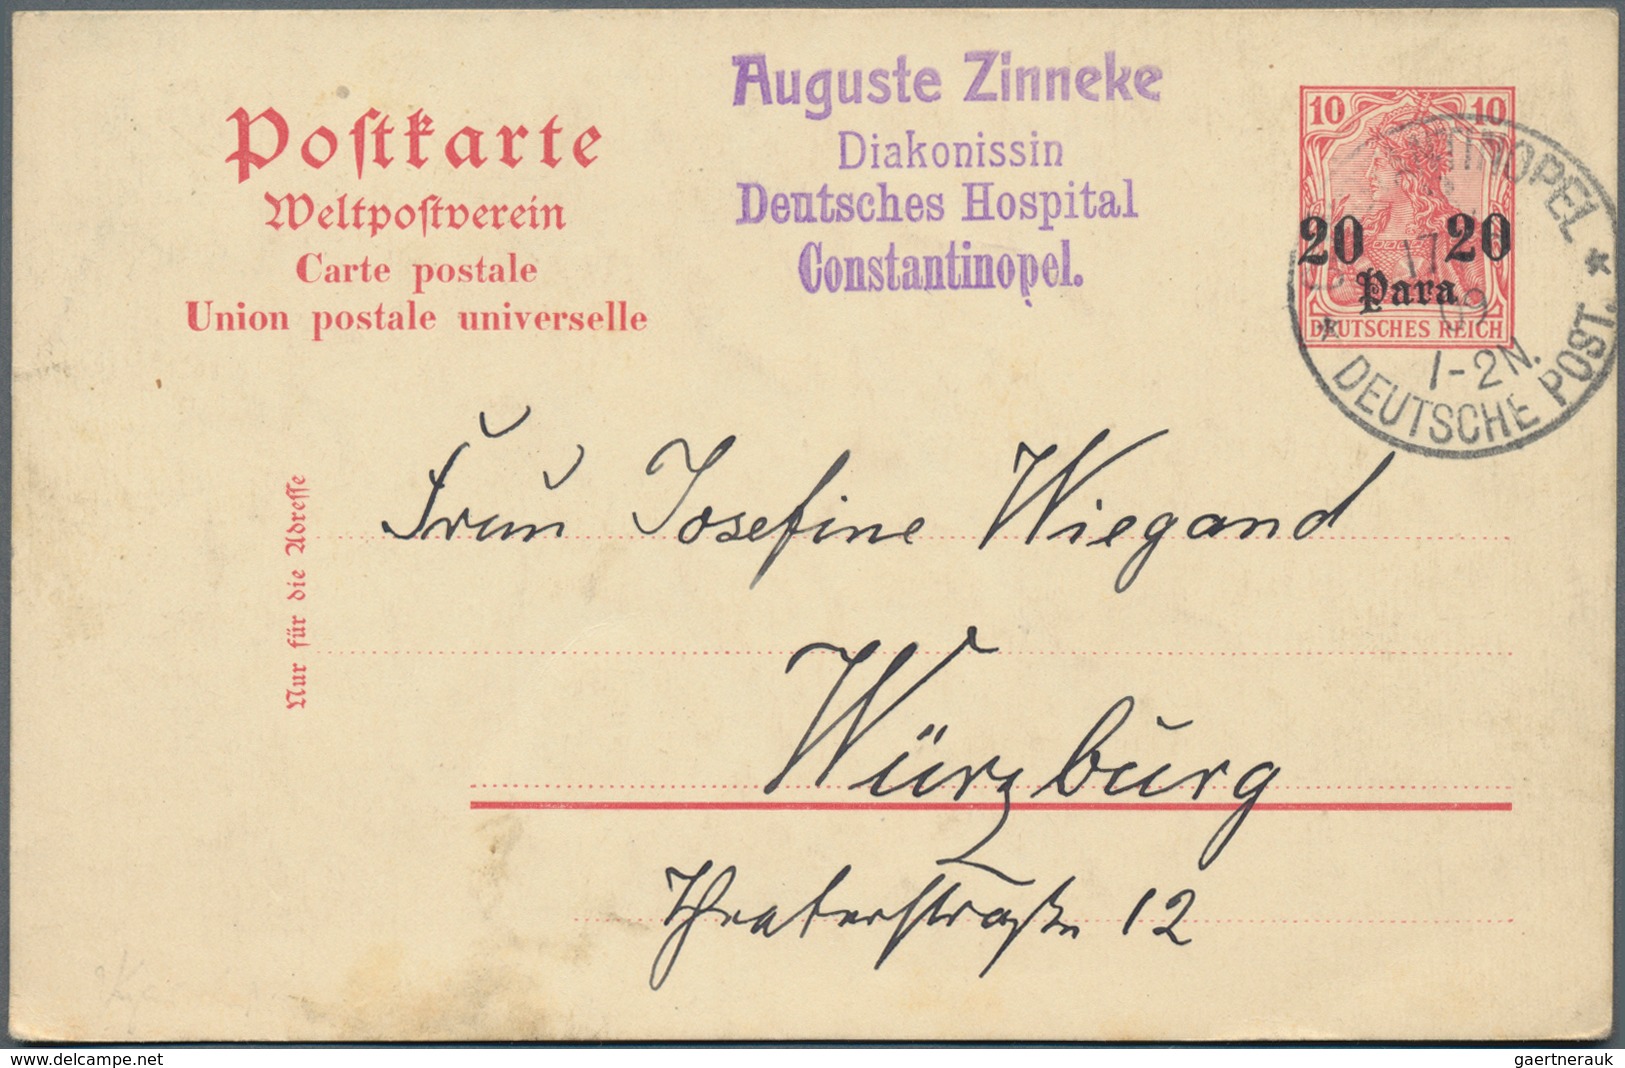 Postkarte
Weltpostverein
Carte postale
Union postale universelle
Auguste Zinneke
Diakonissin
Deutsches Hospital
Constantinopel.
10 10
20 20
Para
DEUTSCHES REICH
TINOPEL *
17
09
1-2N.
* DEUTSCHE POST.
Nur für die Adresse
Frau Josefine Wiegand
Würzburg
Theaterstraße 12
www.delcampe.net
gaertnerauk